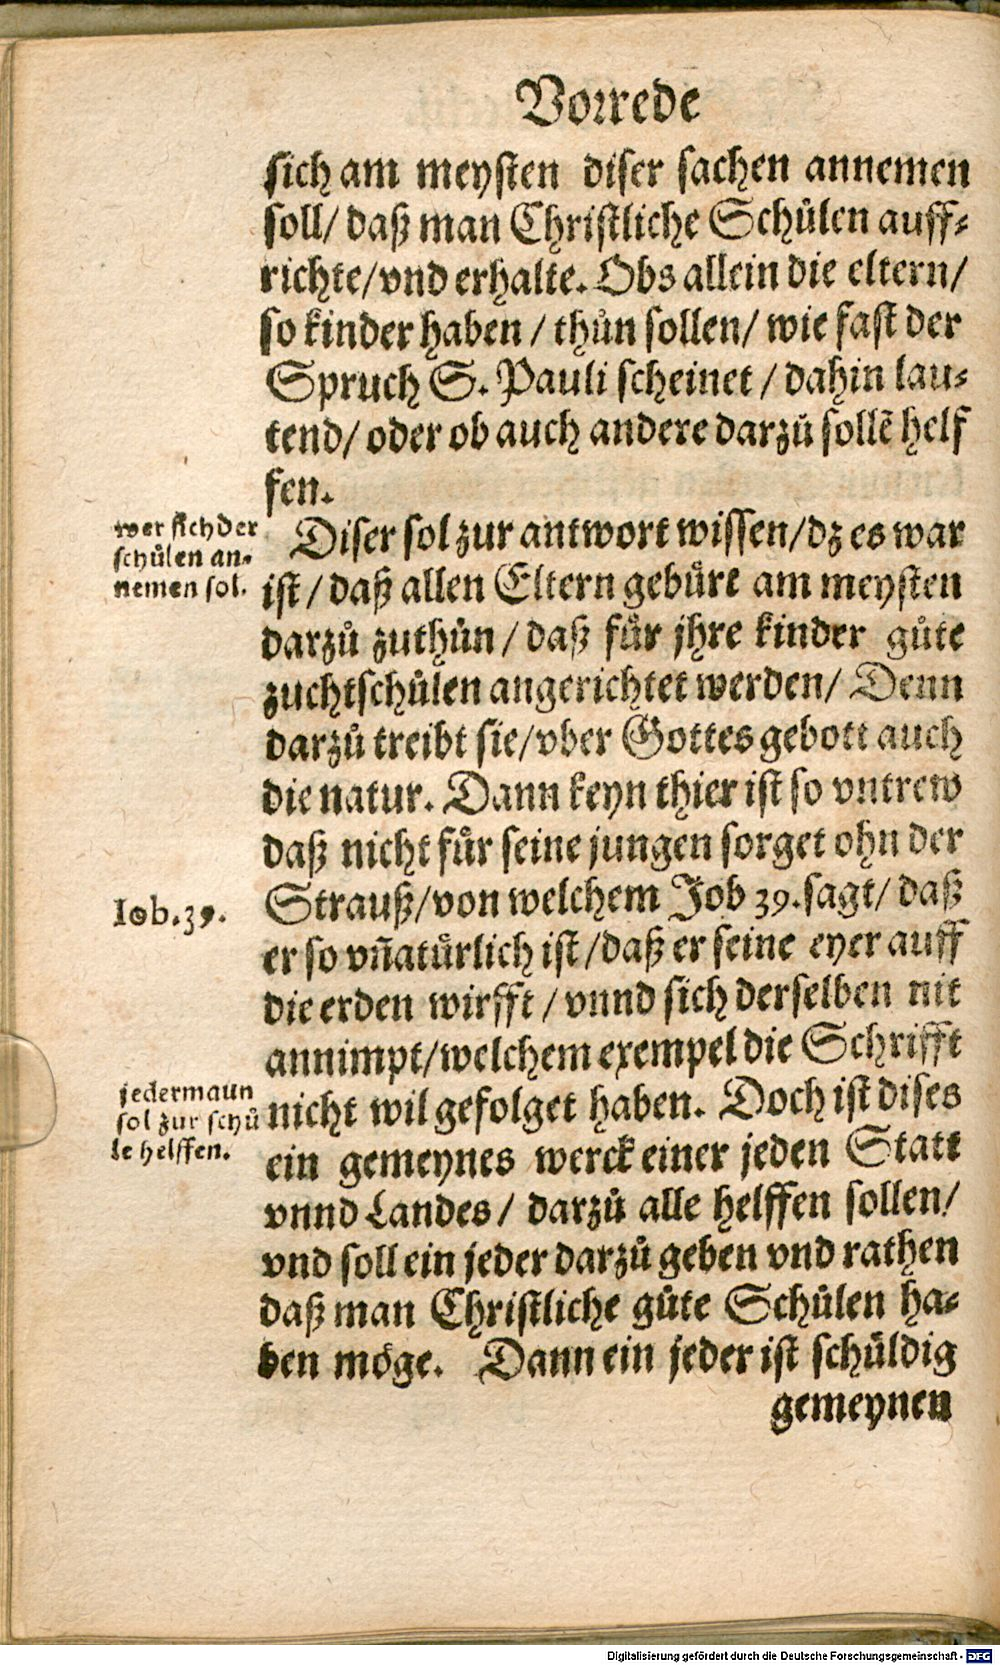 Vorrede
sich am meysten diser sachen annemen
soll/ daß man Christliche Schůlen auff-
richte/ vnd erhalte. Obs allein die eltern/
so kinder haben / thůn sollen/ wie fast der
Spruch S. Pauli scheinet / dahin lau-
tend/ oder ob auch andere darzů sollẽ helf
fen.
wer sich der
schůlen an-
nemen sol.
Diser sol zur antwort wissen/ dz es war
ist / daß allen Eltern gebůrt am meysten
darzů zuthůn / daß fůr jhre kinder gůte
zuchtschůlen angerichtet werden/ Denn
darzů treibt sie/ vber Gottes gebott auch
die natur. Dann keyn thier ist so vntrew
daß nicht fůr seine jungen sorget ohn der
Iob.39.
Strauß/ von welchem Job 39. sagt/ daß
er so vñatůrlich ist / daß er seine eyer auff
die erden wirfft / vnnd sich derselben nit
annimpt/ welchem exempel die Schrifft
jedermann
sol zur schů
le helffen.
nicht wil gefolget haben. Doch ist dises
ein gemeynes werck einer jeden Statt
vnnd Landes / darzů alle helffen sollen/
vnd soll ein jeder darzů geben vnd rathen
daß man Christliche gůte Schůlen ha-
ben möge. Dann ein jeder ist schůldig
gemeynen
Digitalisierung gefördert durch die Deutsche Forschungsgemeinschaft - DFG